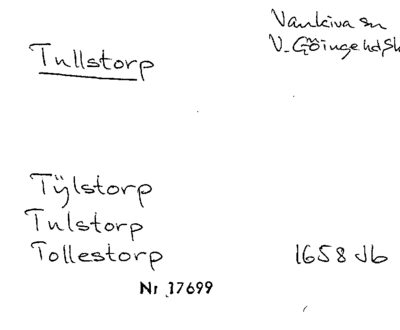 Tullstorp
Vankiva sn
V. Göinge hd, Sk
Tÿlstorp
Tulstorp
Tollestorp 1658 Jb
Nr 17699